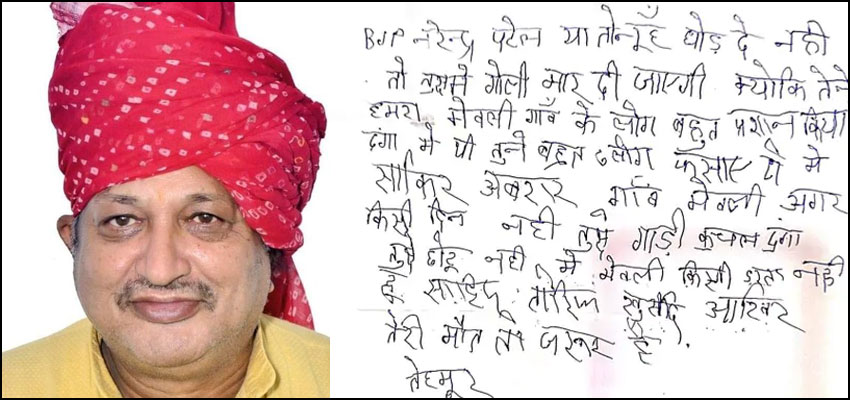 BJP नरेन्द्र पटेल या तो नूहँ छोड़ दे नही
तो तुझमे गोली मार दी जाएगी क्योकि तेने
हमरा मेवली गाँव के लोग बहुत प्रशान किया
दंगा मे पी तुने बहुत लोग फसाए थे मे
साकिर अबरार गाँव मेवली अगर
किसी दिन नही तुझे गाड़ी कुचल दुंगा
तुझे छोडू नही मे मेवली किसी डरता नही
हूँ साहिद तोरिफ खुर्सीद आखिर
तेरी मौत तो जरूर है.
तेहमूर